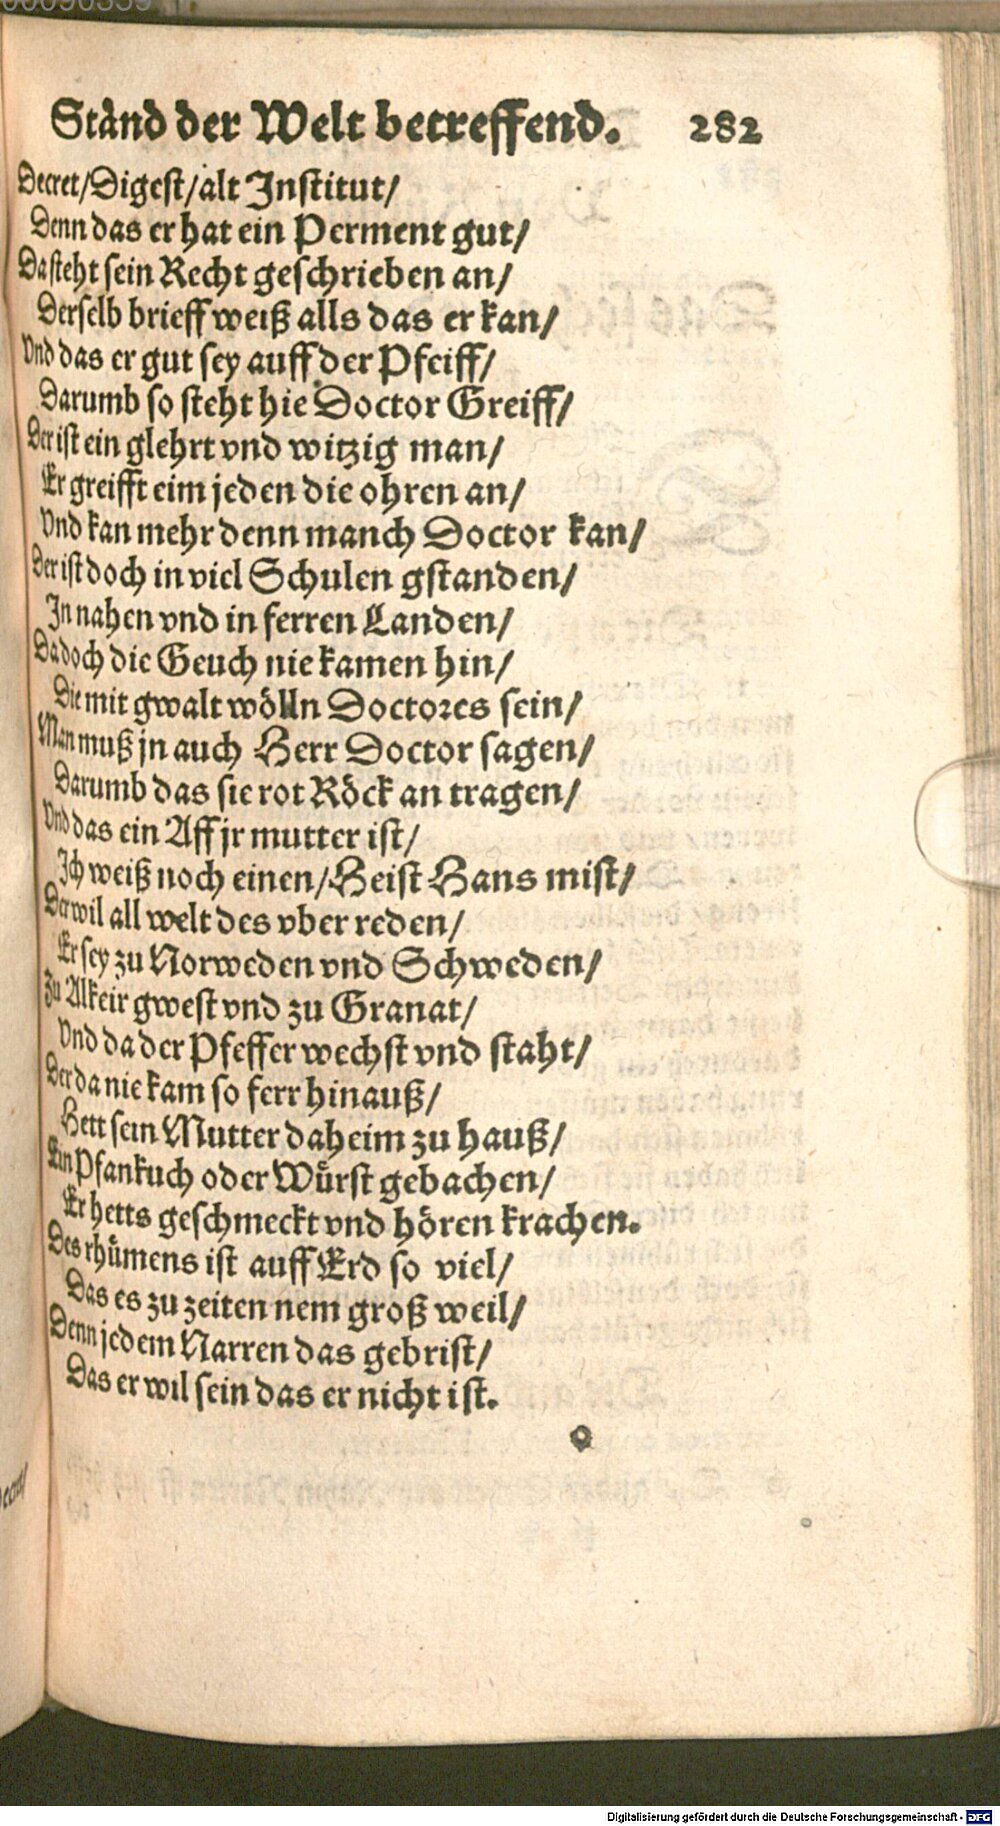 00090359
Stånd der Welt betreffend. 282
Decret/Digest/alt Institut/
Denn das er hat ein Perment gut/
Da steht sein Recht geschrieben an/
Derselb brieff weiß alls das er kan/
Vnd das er gut sey auff der Pfeiff/
Darumb so steht hie Doctor Greiff/
Der ist ein glehrt vnd witzig man/
Er greifft eim jeden die ohren an/
Vnd kan mehr denn manch Doctor kan/
Der ist doch in viel Schulen gstanden/
In nahen vnd in ferren Landen/
Da doch die Geuch nie kamen hin/
Die mit gwalt wölln Doctores sein/
Man muß jn auch Herr Doctor sagen/
Darumb das sie rot Röck an tragen/
Vnd das ein Aff jr mutter ist/
Ich weiß noch einen/Heist Hans mist/
Der wil all welt des vber reden/
Er sey zu Norweden vnd Schweden/
Zu Alkeir gwest vnd zu Granat/
Vnd da der Pfeffer wechst vnd staht/
Der da nie kam so ferr hinauß/
Hett sein Mutter daheim zu hauß/
Ein Pfankuch oder Würst gebachen/
Er hetts geschmeckt vnd hören krachen.
Des rhümens ist auff Erd so viel/
Das es zu zeiten nem groß weil/
Denn jedem Narren das gebrist/
Das er wil sein das er nicht ist.
Digitalisierung gefördert durch die Deutsche Forschungsgemeinschaft - DFG